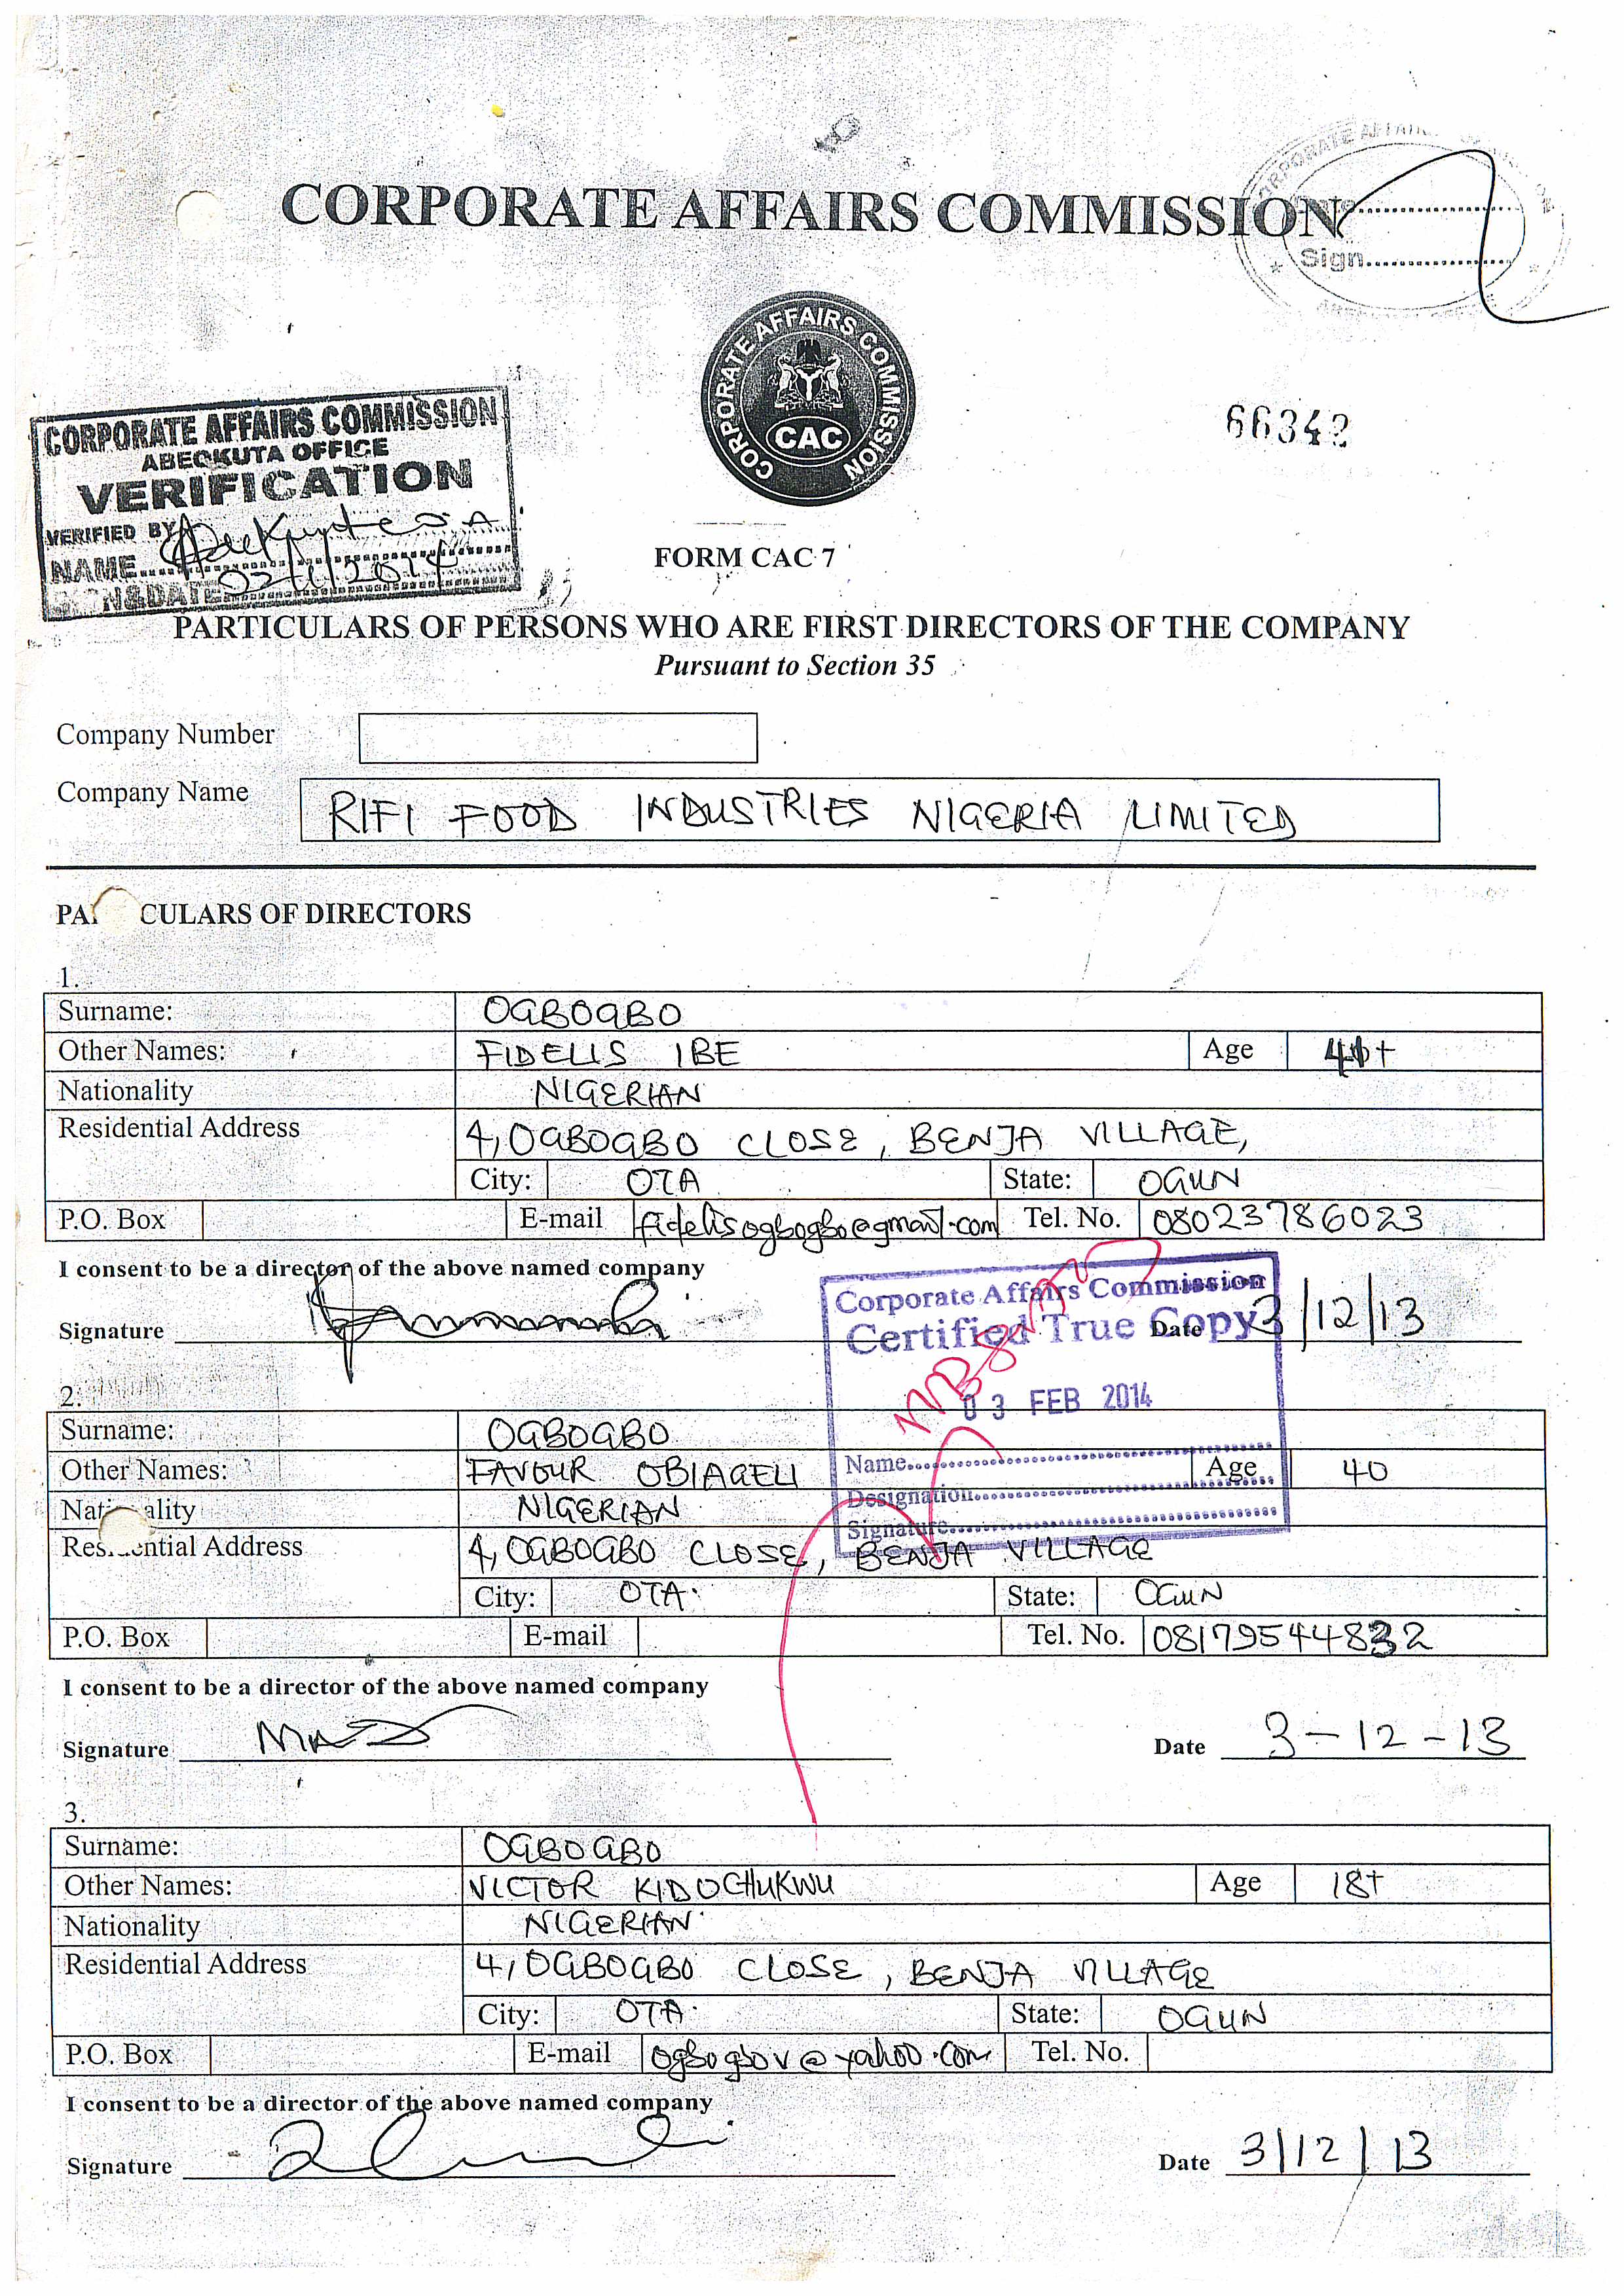 CORPORATE AFFAIRS COMMISSION
Sign
CORPORATE AFFAIRS COMMISSION
CAC
66342
CORPORATE AFFAIRS COMMISSION
ABEOKUTA OFFICE
VERIFICATION
VERIFIED BY
NAME
SIGN&DATE
FORM CAC 7
PARTICULARS OF PERSONS WHO ARE FIRST DIRECTORS OF THE COMPANY
Pursuant to Section 35
Company Number
Company Name RIFI FOOD INDUSTRIES NIGERIA LIMITED
PARTICULARS OF DIRECTORS
1.
Surname: OGBOGBO
Other Names: FIDELIS IBE Age
Nationality NIGERIAN
Residential Address 4, OGBOGBO CLOSE, BENJA VILLAGE,
City: OTA State: OGUN
P.O. Box E-mail fidelisogbogbo@gmail.com Tel. No. 08023786023
I consent to be a director of the above named company
Signature Date 3/12/13
Corporate Affairs Commission
Certified True Copy
03 FEB 2014
Name
Designation
Signature
2.
Surname: OGBOGBO
Other Names: FAVOUR OBIAGELI Age 40
Nationality NIGERIAN
Residential Address 4, OGBOGBO CLOSE, BENJA VILLAGE
City: OTA. State: OGUN
P.O. Box E-mail Tel. No. 08179544832
I consent to be a director of the above named company
Signature Date 3-12-13
3.
Surname: OGBOGBO
Other Names: VICTOR KIDOCHUKWU Age 18+
Nationality NIGERIAN
Residential Address 4, OGBOGBO CLOSE, BENJA VILLAGE
City: OTA. State: OGUN
P.O. Box E-mail ogbogbov@yahoo.com Tel. No.
I consent to be a director of the above named company
Signature Date 3/12/13